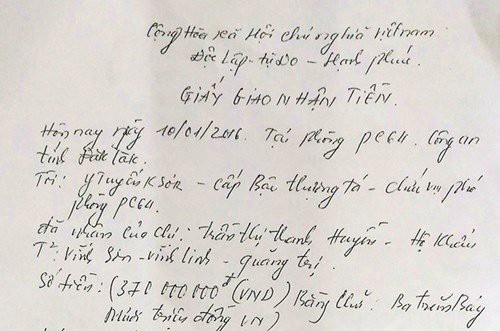 Cộng Hòa xã Hội chủ nghĩa Việt nam
Độc Lập - Tự Do - Hạnh phúc.
GIẤY GIAO NHẬN TIỀN.
Hôm nay ngày 10/01/2016. Tại phòng PC64. Công an
tỉnh Đăk Lăk.
Tôi: Y Tuyến Ksơr - cấp Bậc thượng tá - chức vụ phó
phòng PC64.
đã nhận của chị: Trần thị thanh Huyền - Hộ Khẩu
T²: Vĩnh Sơn - Vĩnh Linh - quảng trị.
Số tiền: (370 000 000đ (VND) Bằng chữ: Ba trăm Bảy
Mươi triệu đồng VN)